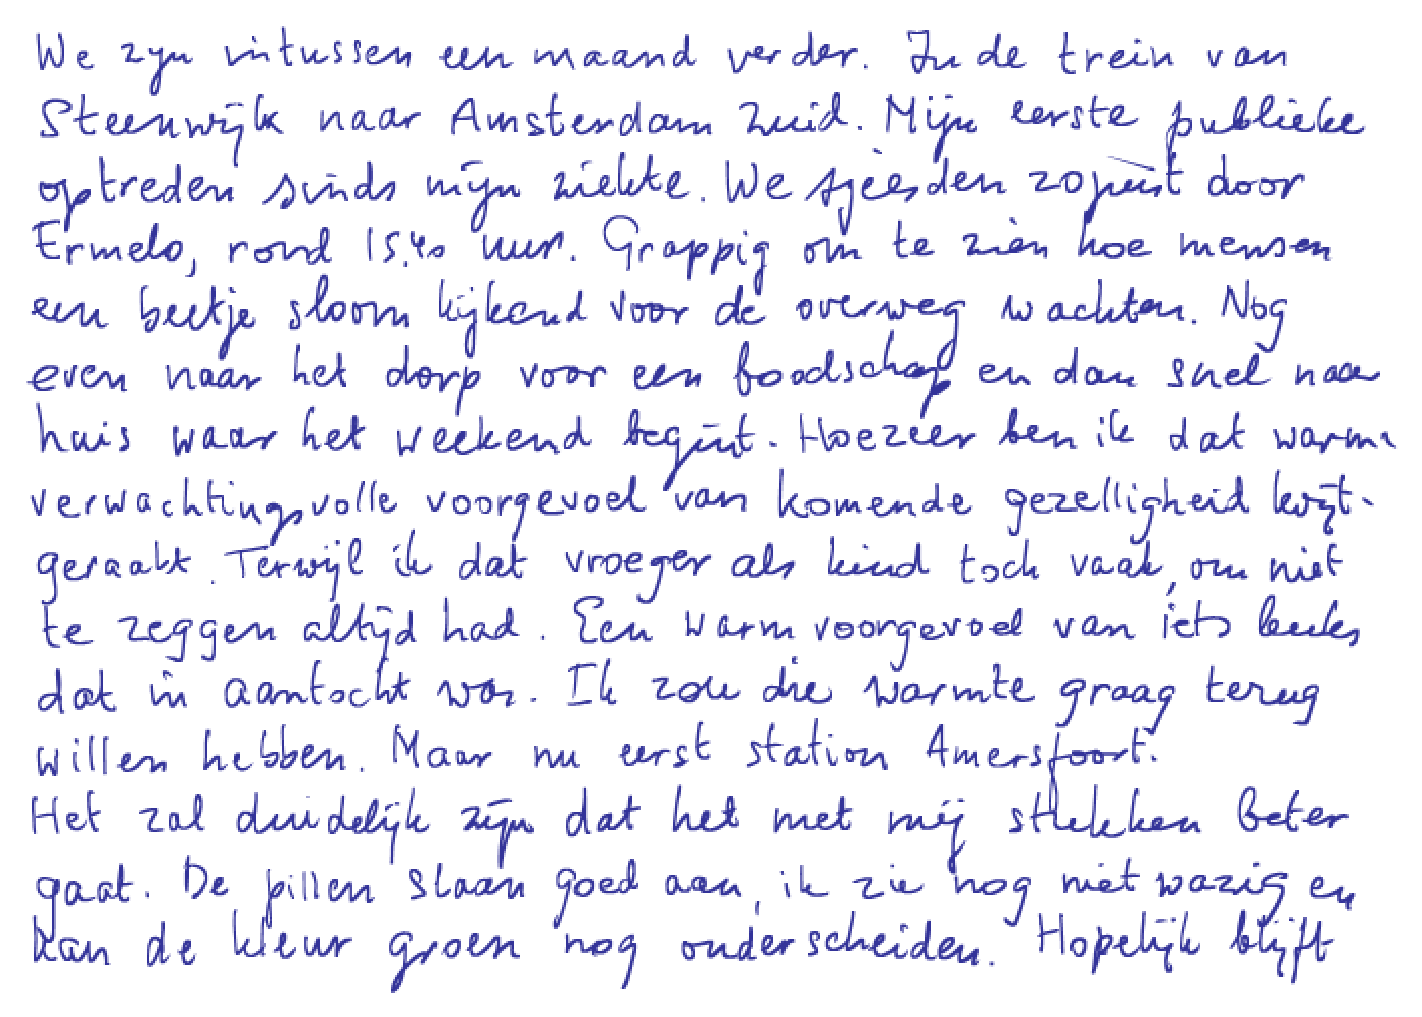 We zijn intussen een maand verder. In de trein van
Steenwijk naar Amsterdam Zuid. Mijn eerste publieke
optreden sinds mijn ziekte. We sjeesden zojuist door
Ermelo, rond 15.40 uur. Grappig om te zien hoe mensen
een beetje sloom kijkend voor de overweg wachten. Nog
even naar het dorp voor een boodschap en dan snel naar
huis waar het weekend begint. Hoezeer ben ik dat warme
verwachtingsvolle voorgevoel van komende gezelligheid kwijt-
geraakt. Terwijl ik dat vroeger als kind toch vaak, om niet
te zeggen altijd had. Een warm voorgevoel van iets leuks
dat in aantocht was. Ik zou die warmte graag terug
willen hebben. Maar nu eerst station Amersfoort.
Het zal duidelijk zijn dat het met mij stukken beter
gaat. De pillen slaan goed aan, ik zie nog niet wazig en
kan de kleur groen nog onderscheiden. Hopelijk blijft